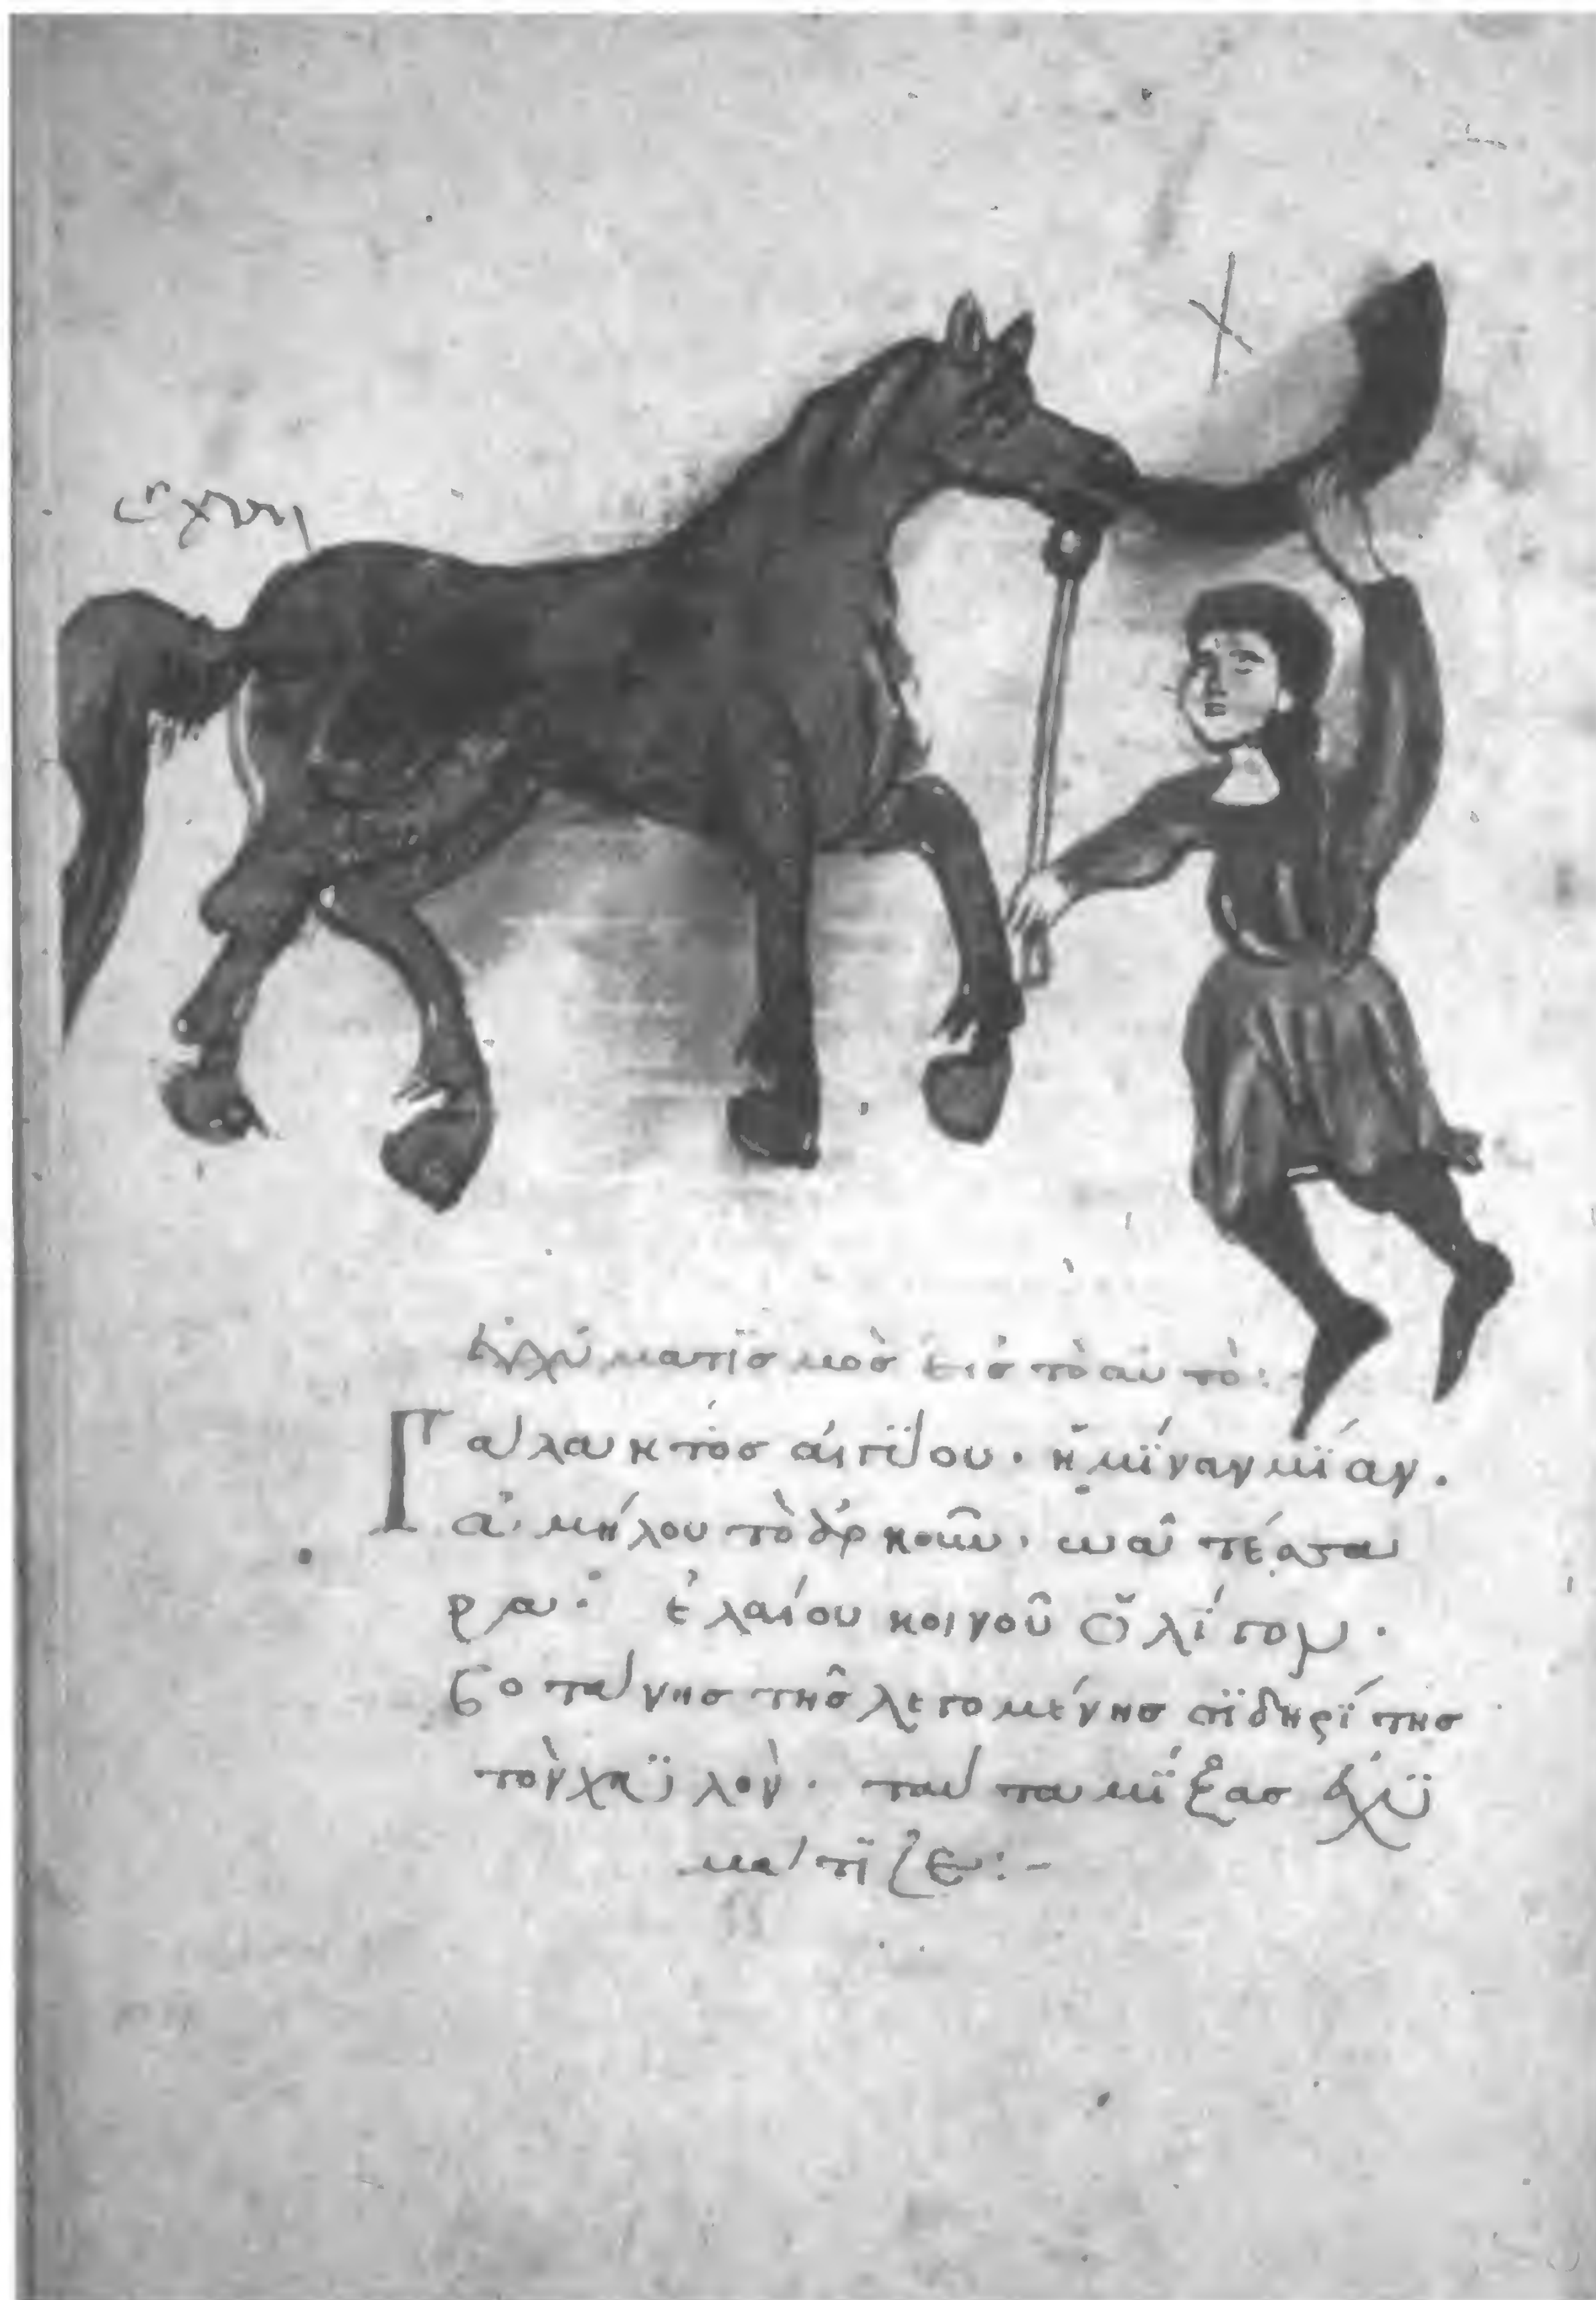 ἐγχυματϊσμὸσ εἰσ τὸ αὐτό:
Γάλακτοσ αἰγϊου · ἡμϊναν μϊαν ·
ἀμύλου τὸ ἀρκοῦν · ὠὰ τέσσα
ρα · ἐλαίου κοινοῦ ὀλίγον ·
βοτάνησ τῆσ λεγομένησ σϊδηρϊτησ
τὸν χϋλὸν · ταῦτα μϊξασ ἐγχϋ
μάτϊζε :-